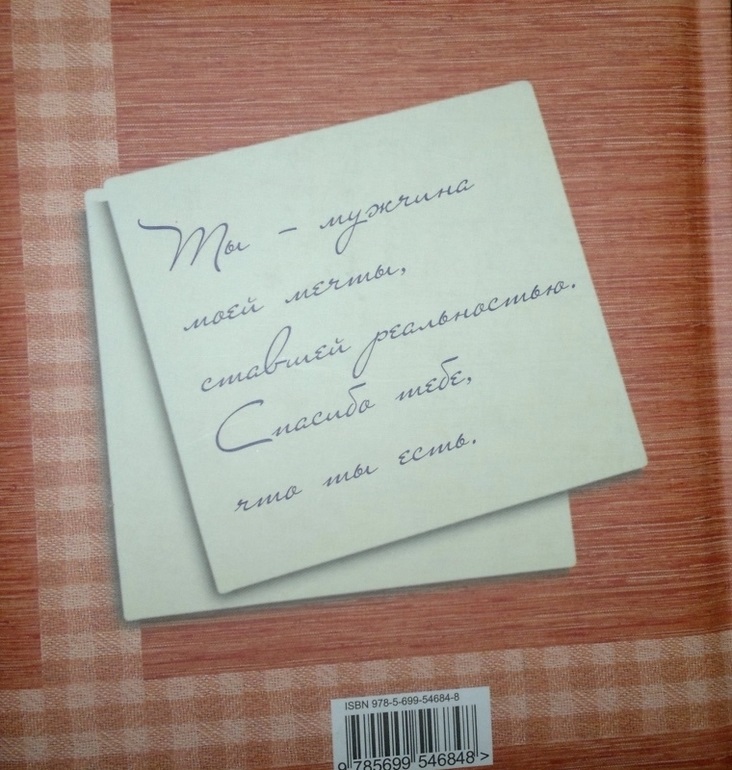 Ты – мужчина
моей мечты,
ставшей реальностью.
Спасибо тебе,
что ты есть.
ISBN 978-5-699-54684-8
9 785699 546848 >